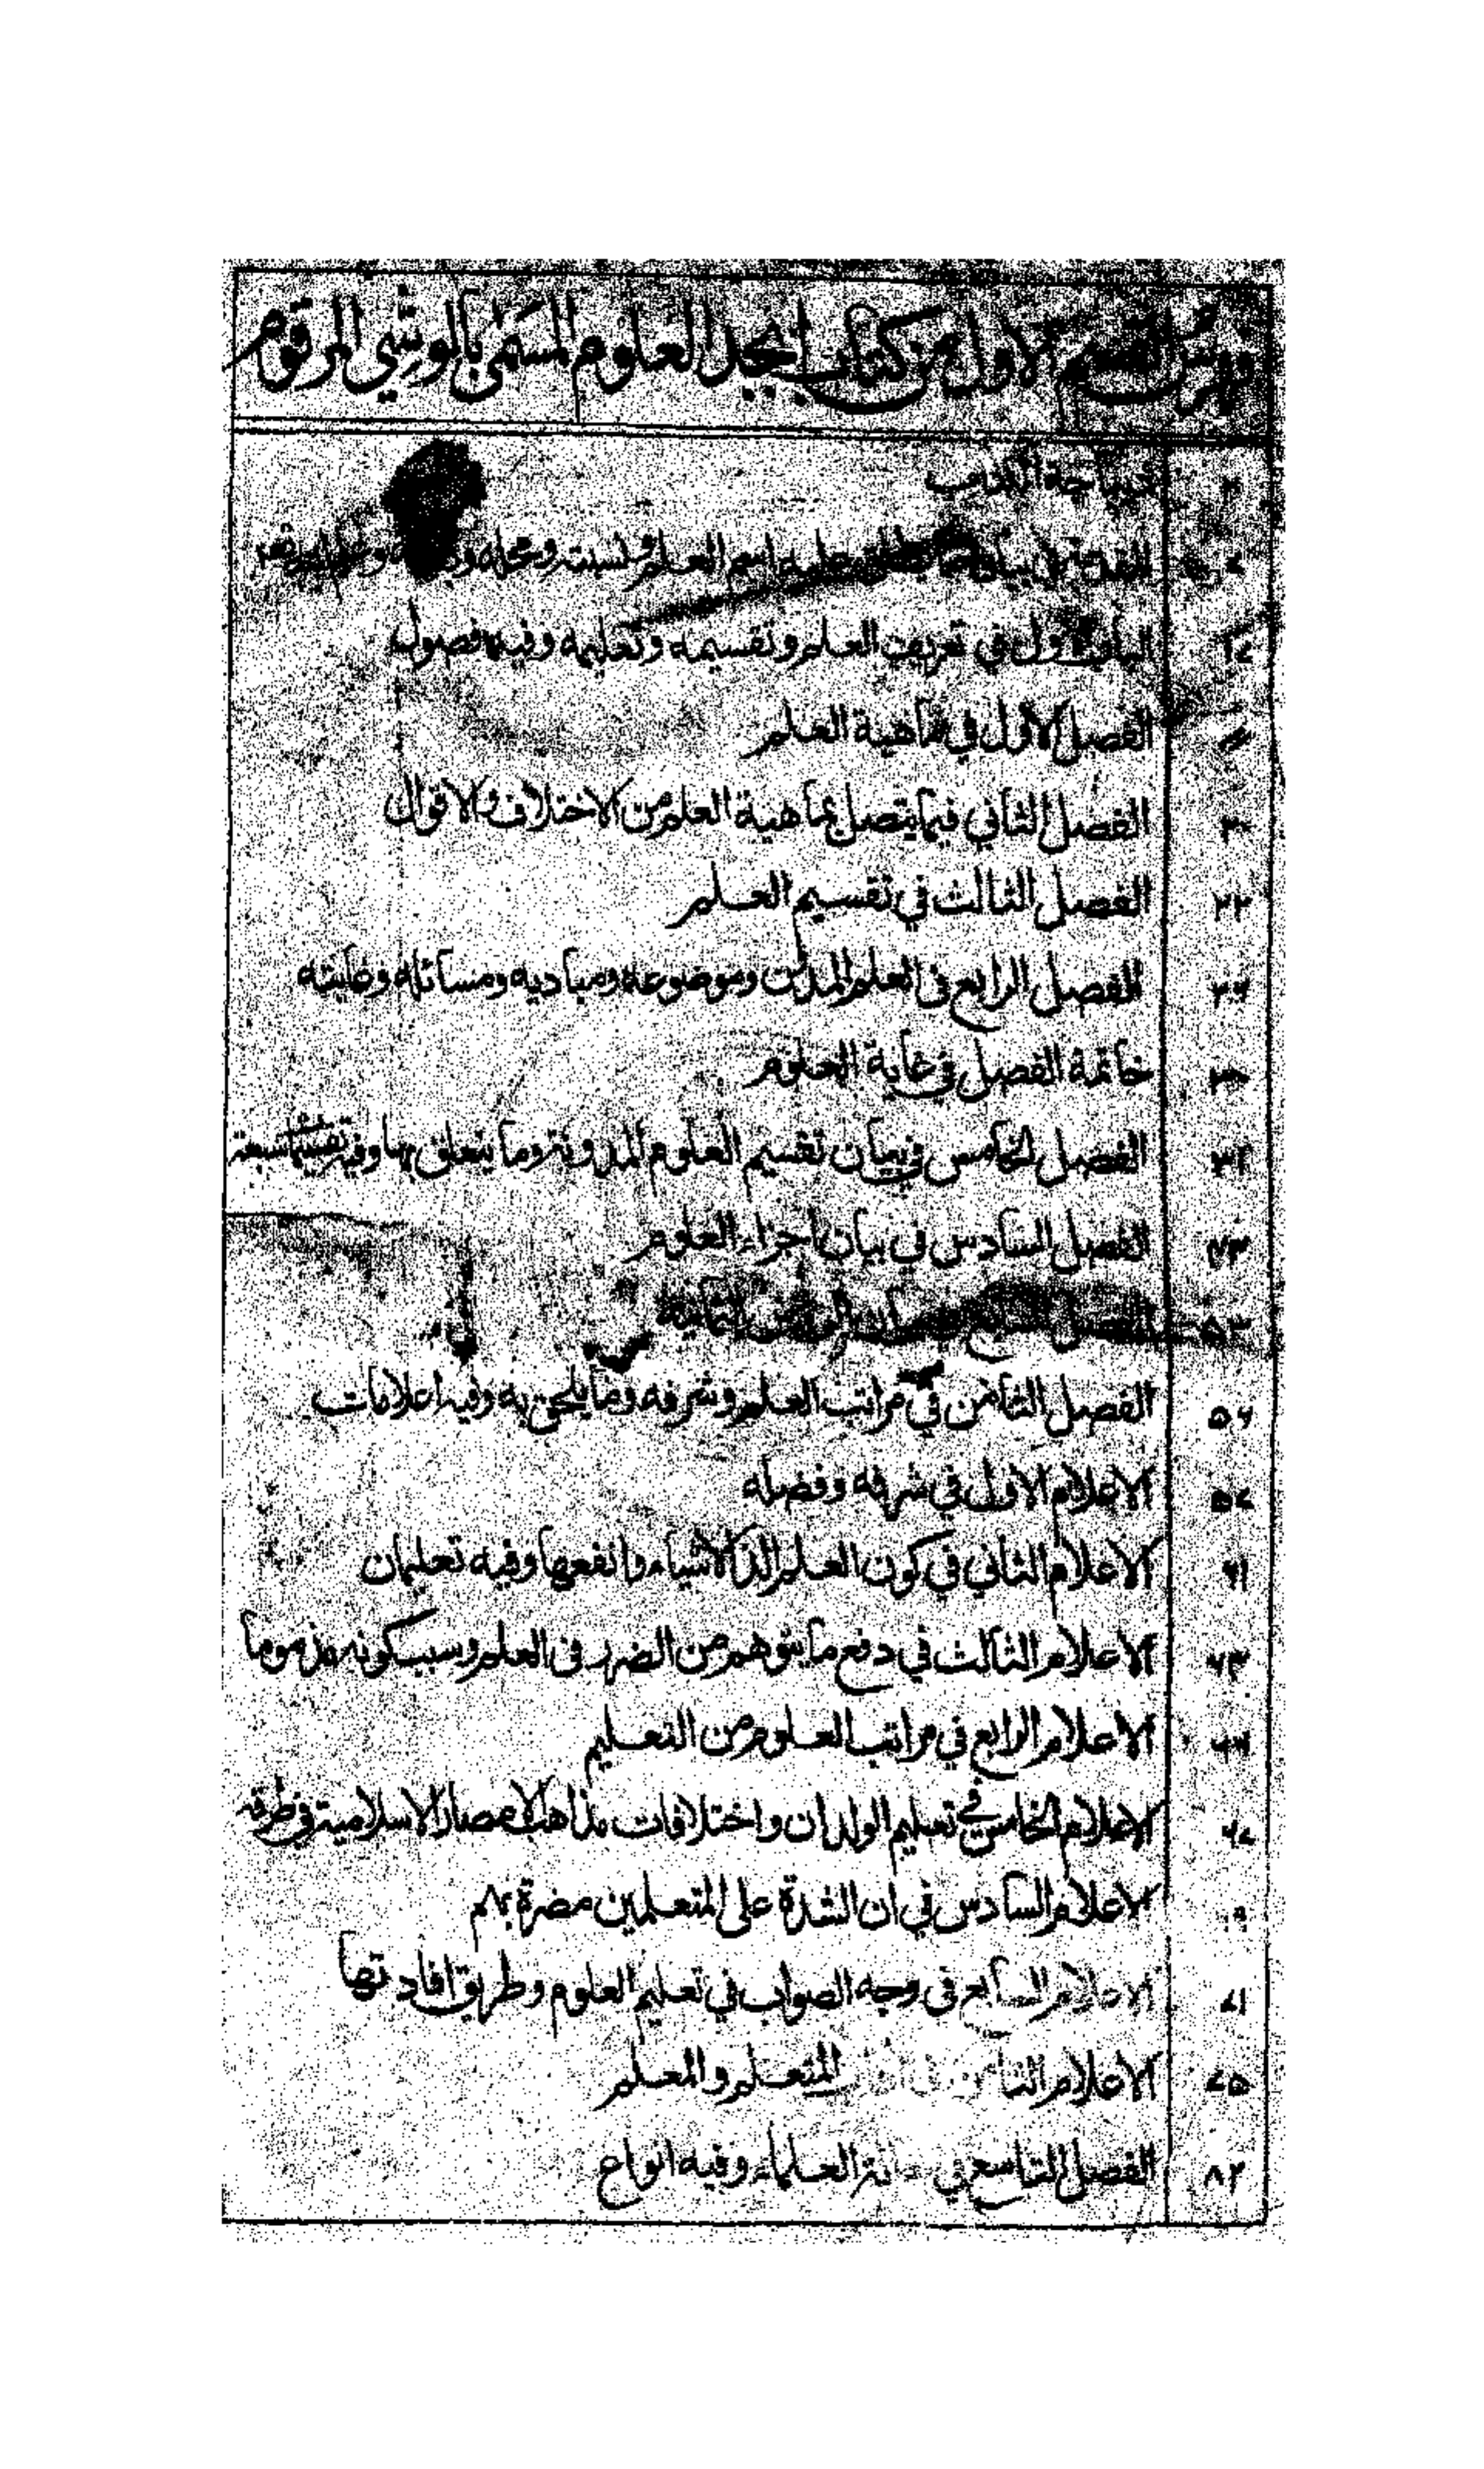 فهرس القسم الاول من كتاب ابجد العلوم المسمى بالوشي المرقوم
٢ ديباجة الكتاب
المقدمة في بيان ما يطلق عليه اسم العلم ونسبته ومحله
١٤ الباب الاول في تعريف العلم وتقسيمه وتعليمه وفيه فصول
الفصل الاول في ماهية العلم
٢٠ الفصل الثاني فيما يتصل بماهية العلم من الاختلاف والاقوال
٢٢ الفصل الثالث في تقسيم العلم
٢٦ الفصل الرابع في العلم المدون وموضوعه ومباديه ومسائله وغايته
٣٠ خاتمة الفصل في غاية العلوم
٣٢ الفصل الخامس في بيان تقسيم العلوم المدونة وما يتعلق بها وفيه تقسيمات سبعة
الفصل السادس في بيان اجزاء العلوم
٥٣ الفصل السابع في بيان الرؤس الثمانية
٥٦ الفصل الثامن في مراتب العلم وشرفه وما يلحق به وفيه اعلامات
٥٧ الاعلام الاول في شرفه وفضله
٦١ الاعلام الثاني في كون العلم الذ الاشياء وانفعها وفيه تعليمان
٦٣ الاعلام الثالث في دفع ما يتوهم من الضرر في العلم وسبب كونه مذموما
٦٦ الاعلام الرابع في مراتب العلوم من التعليم
٦٧ الاعلام الخامس في تعليم الولدان واختلافات مذاهب الامصار الاسلامية في طرقه
الاعلام السادس في ان الشدة على المتعلمين مضرة بهم
٧١ الاعلام السابع في وجه الصواب في تعليم العلوم وطريق افادتها
٧٥ الاعلام الثامن في المتعلم والمعلم
٨٢ الفصل التاسع في العلماء وفيه انواع